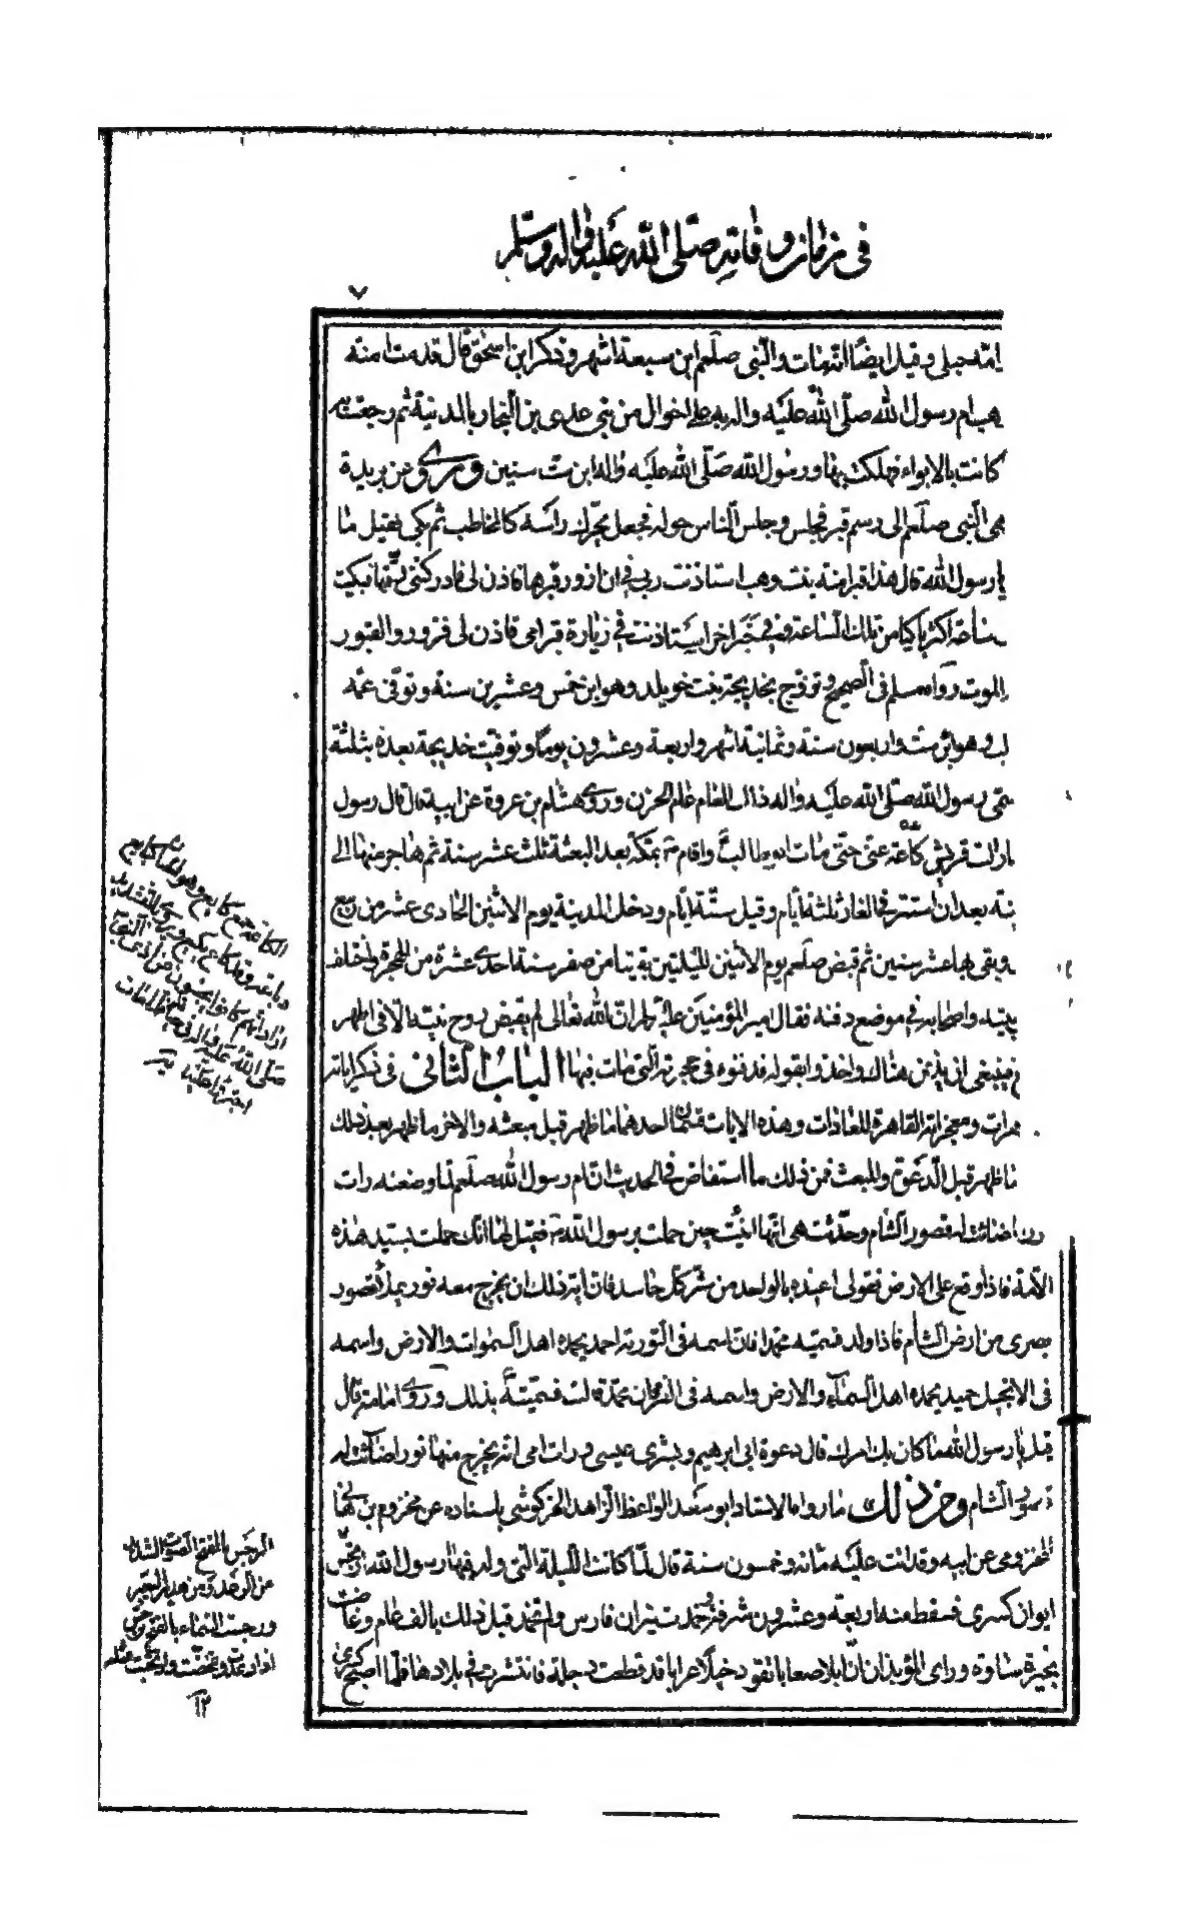 في زمان وفاته صلى الله عليه واله وسلم
٧
امه حبلى وقيل ايضًا انه مات والنبي صلعم ابن سبعة اشهر وذكر ابن اسحق قال قدمت امنة
هب ام رسول الله صلى الله عليه واله به على اخوال من بني عدي بن النجار بالمدينة ثم رجعت به
كانت بالابواء فهلكت بها ورسول الله صلى الله عليه واله ابن ست سنين وروي عن بريدة
هى النبي صلعم الى رسم قبر فجلس وجلس الناس حوله فجعل يحرك راسه كالمخاطب ثم بكى فقيل ما
يا رسول الله قال هذا قبر امنة بنت وهب استاذنت ربي في ان ازور قبرها فاذن لي فادركتني رقتها فبكيت
ساعة اكثر باكيا من تلك الساعة وفي خبر اخر استاذنت في زيارة قبر امي فاذن لي فزوروا القبور
الموت رواه مسلم في الصحيح وتزوج بخديجة بنت خويلد وهو ابن خمس وعشرين سنة وتوفى عمه
لب وهو ابن ست واربعون سنة وثمانية اشهر واربعة وعشرون يوما وتوفيت خديجة بعده بثلثة
مى رسول الله صلى الله عليه واله ذلك العام عام الحزن وروى هشام بن عروة عن ابيه قال قال رسول
ازالت قريش كاعة عني حتى مات ابو طالب واقام بمكة بعد البعثة ثلث عشر سنة ثم هاجر منها الى
ينة بعد ان استتر في الغار ثلثة ايام وقيل ستة ايام ودخل المدينة يوم الاثنين الحادى عشر من ربيع
وبقى بها عشر سنين ثم قبض صلعم يوم الاثنين لليلتين بقيتا من صفر سنة احدى عشرة من الهجرة واختلف
بيته واصحابه في موضع دفنه فقال امير المؤمنين عليه ان الله تعالى لم يقبض روح نبيه الا في اطهر
ع فينبغي ان يدفن هناك واخذوا بقوله فدفنوه في حجرته التي مات فيها الباب الثاني في ذكر اياته
هرات ومعجزاته القاهرة للعادات وهذه الايات قسمان احدهما ما ظهر قبل مبعثه والاخر ما ظهر بعد ذلك
ما ظهر قبل الدعوة والمبعث فمن ذلك ما استفاض في الحديث ان ام رسول الله صلعم لما وضعته رات
اضائت له قصور الشام وحدثت هى انها اتيت حين حملت برسول الله فقيل لها انك حملت بسيد هذه
الامة فاذا وقع على الارض فقولي اعيذه بالواحد من شر كل حاسد فان اية ذلك ان يخرج معه نور يملأ قصور
بصرى من ارض الشام فاذا ولد فسميه محمدا فان اسمه في التورية احمد يحمده اهل السموات والارض واسمه
في الانجيل احمد يحمده اهل السماء والارض واسمه في الفرقان محمد قالت فسميته بذلك وروى امامة قال
قيل يا رسول الله ما كان بدء امرك قال دعوة ابي ابراهيم وبشرى عيسى ورات امي انه يخرج منها نور اضائت له
قصور الشام ومن ذلك ما رواه الاستاد ابو سعد الواعظ الزاهد الخركوشي باسناده عن مخزوم بن هاني
المخزومي عن ابيه وقد اتت عليه مائة وخمسون سنة قال لما كانت الليلة التي ولد فيها رسول الله ارتجس
ايوان كسرى فسقط منه اربعة وعشرون شرفة وخمدت نيران فارس ولم تخمد قبل ذلك بالف عام وغاضت
بحيرة ساوة وراى المؤبذان ان ابلا صعابا تقود خيلا عرابا قد قطعت دجلة فانتشرت في بلادها فلما اصبح كسرى
الكاعة جمع كايع وهو الجبان كبايع
وباعة وقد كاع يكيع ويروى بالتشديد
اراد انهم كانوا يجبنون عن اذى النبي
صلى الله عليه واله في حيوة ابي طالب فلما مات
اجترأوا عليه
الرجس بالفتح الصوت الشديد
من الرعد ومن هدير البعير
ورجست السماء بالفتح ترجس
اذا رعدت وتمخضت وارتجست مثله
١٢